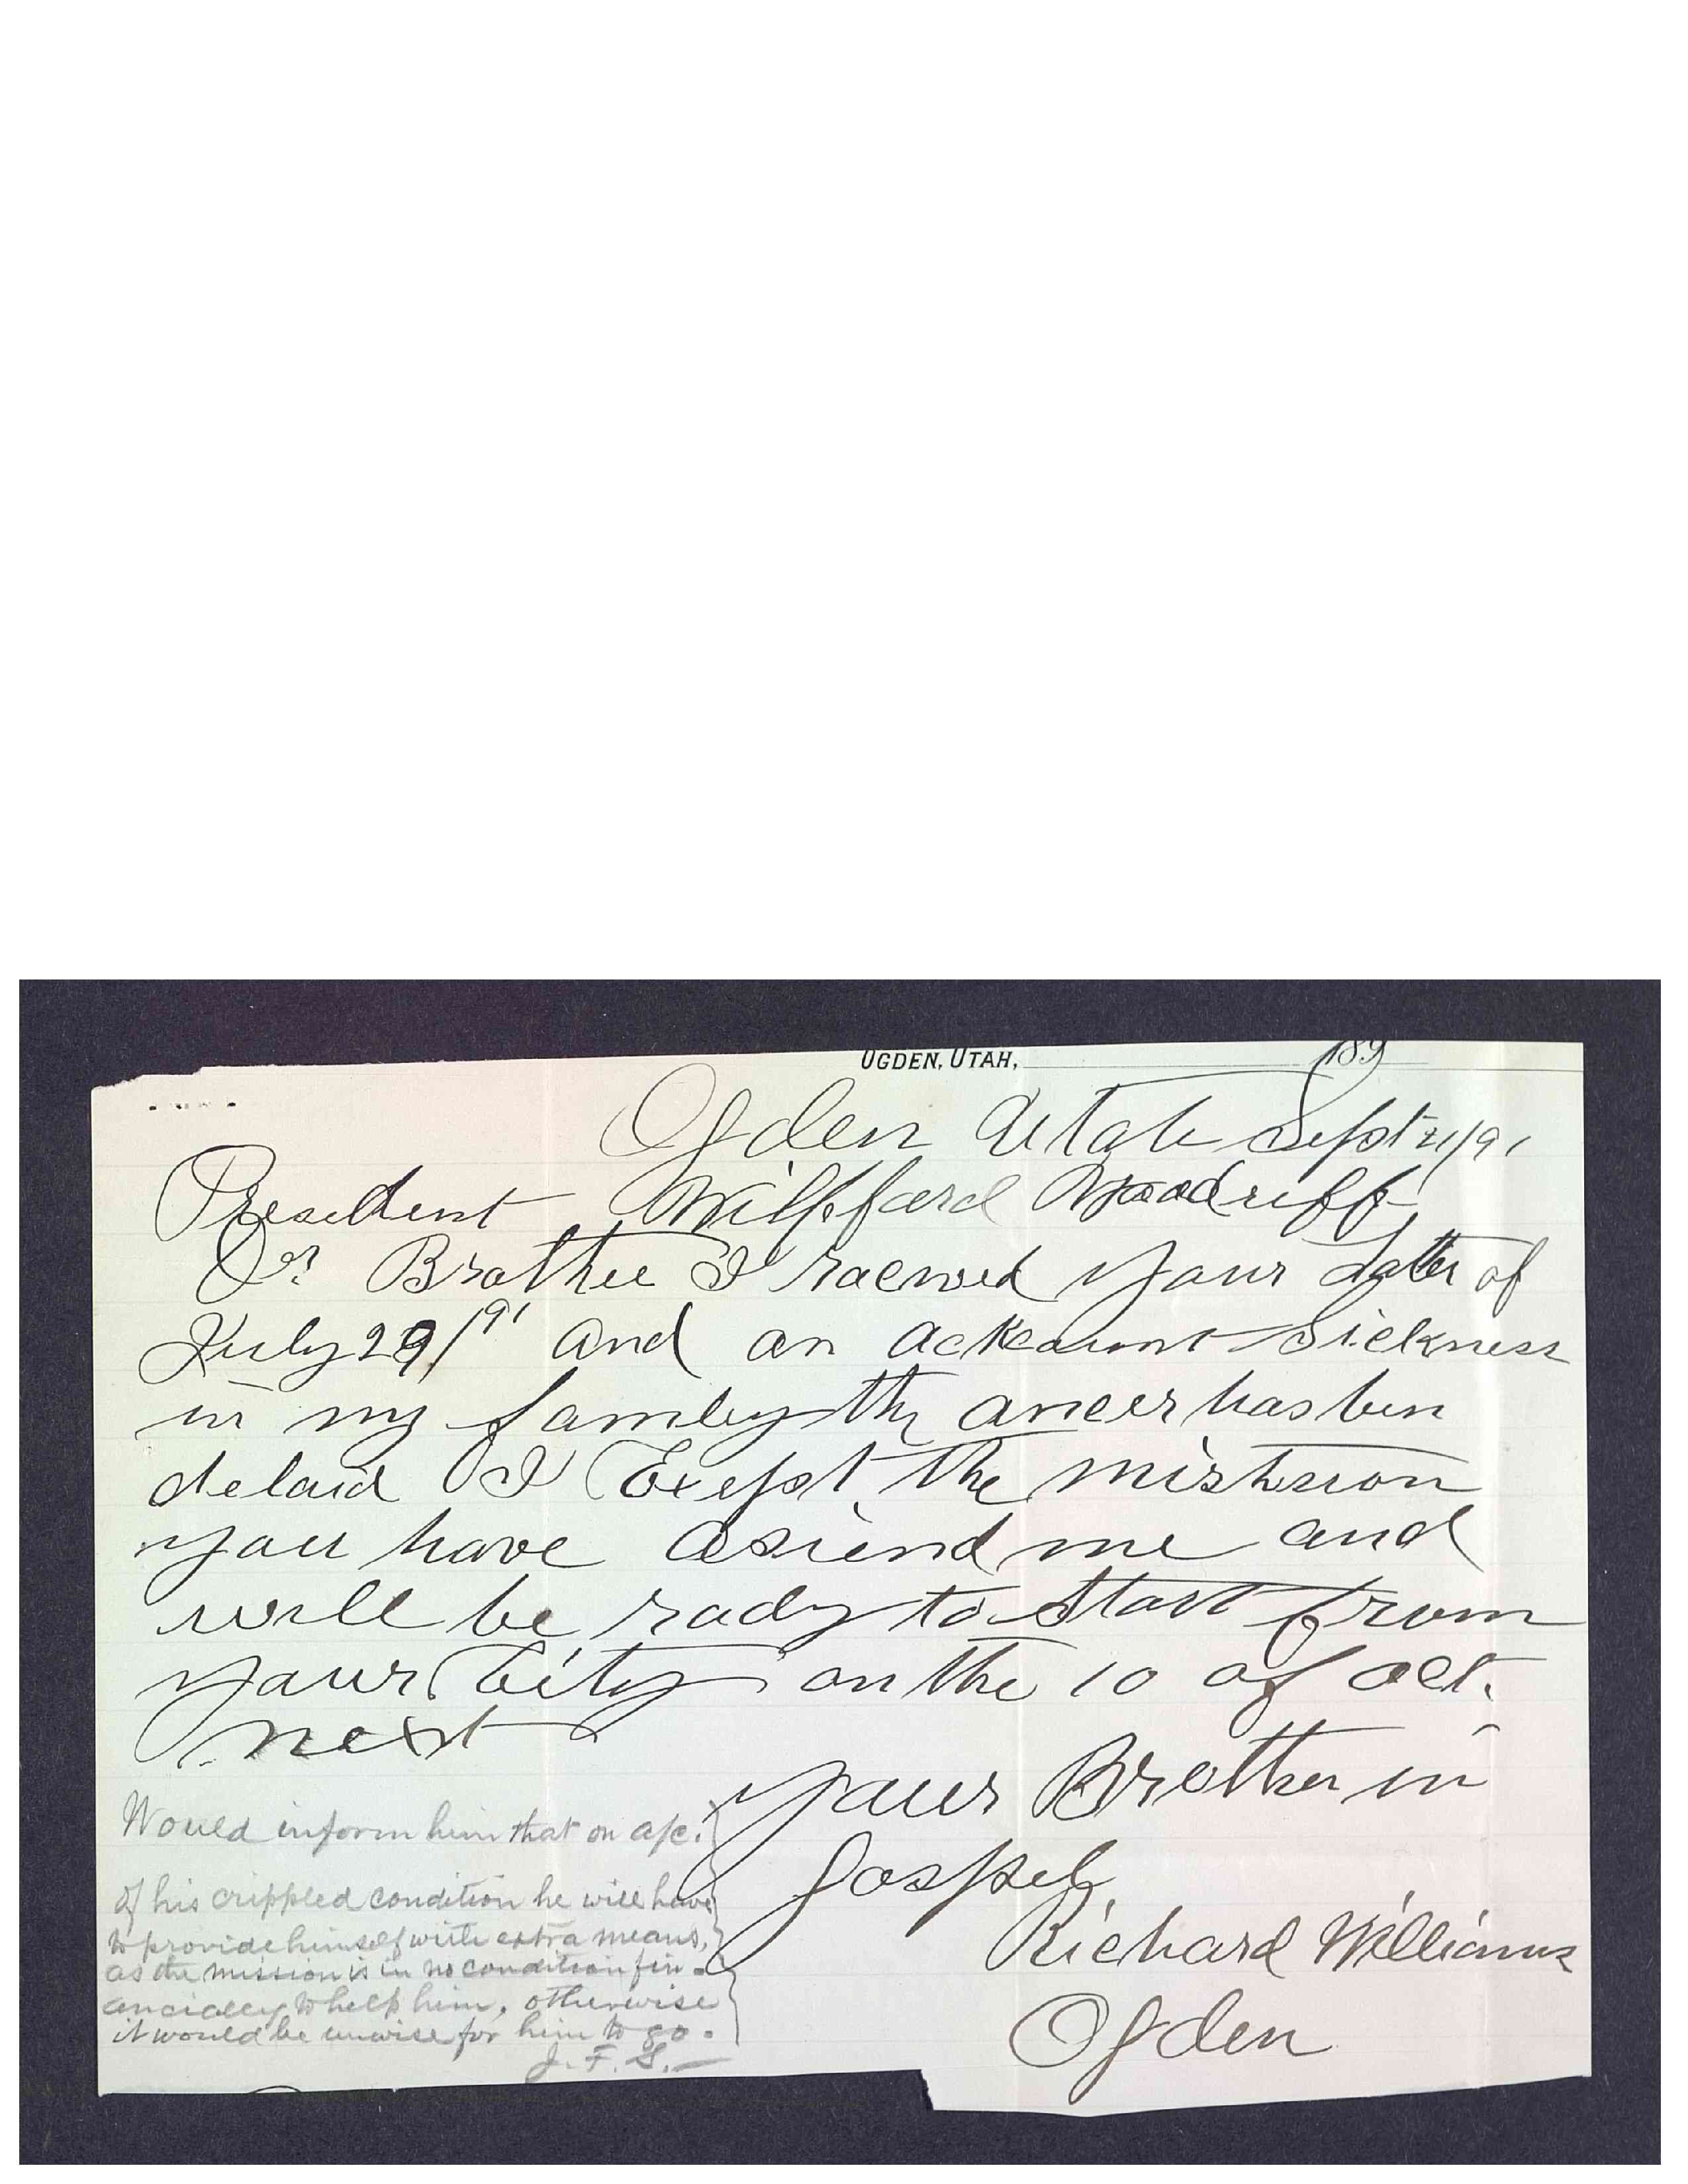 OGDEN, UTAH, 189
Ogden Utah Sept 21/91
President Wilfford Woodruff
Dr Brother I racived your Latter of
July 29/91 and on ackount Sickness
in my famley the ancer has ben
delaid I Except the mishsion
you have asiend me and
will be rady to start from
your City on the 10 of oct.
next
your Brother in
Gospel
Richard Williams
Ogden
Would inform him that on a/c.
of his crippled condition he will have
to provide himself with extra means,
as the mission is in no condition fin-
ancially to help him, otherwise
it would be unwise for him to go.
J. F. S.